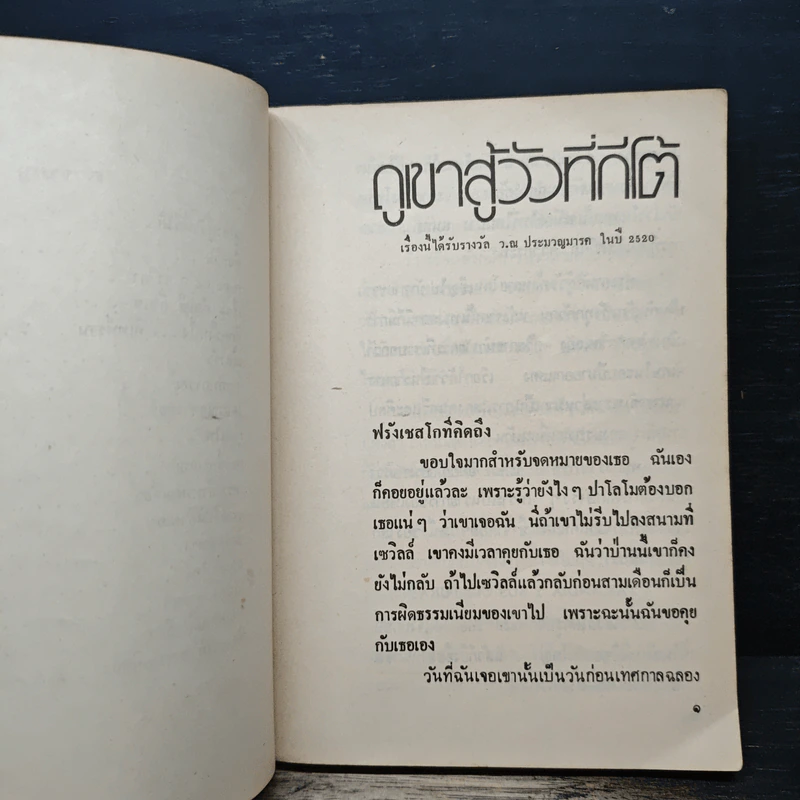 ภูเขาสู้วัวที่กีโต้
เรื่องนี้ได้รับรางวัล ว.ณ ประมวญมารค ในปี 2520
ฟรังเชสโกที่คิดถึง
ขอบใจมากสำหรับจดหมายของเธอ ฉันเอง
ก็คอยอยู่แล้วละ เพราะรู้ว่ายังไง ๆ ปาโลโมต้องบอก
เธอแน่ ๆ ว่าเขาเจอฉัน นี่ถ้าเขาไม่รีบไปลงสนามที่
เซวิลล์ เขาคงมีเวลาคุยกับเธอ ฉันว่าป่านนี้เขาก็คง
ยังไม่กลับ ถ้าไปเซวิลล์แล้วกลับก่อนสามเดือนก็เป็น
การผิดธรรมเนียมของเขาไป เพราะฉะนั้นฉันขอคุย
กับเธอเอง
วันที่ฉันเจอเขานั้นเป็นวันก่อนเทศกาลฉลอง
๑